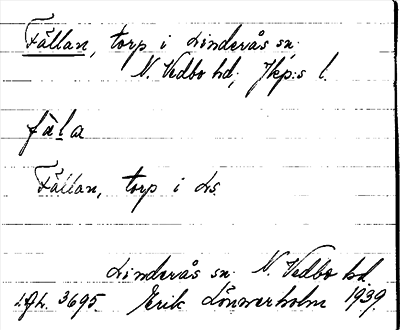 Fällan, torp i Linderås sn.
N. Vedbo hd, Jkp:s l.
fäla
Fällan, torp i Ls.
Linderås sn. N. Vedbo hd.
LAL. 3695. Erik Lönnerholm 1939.